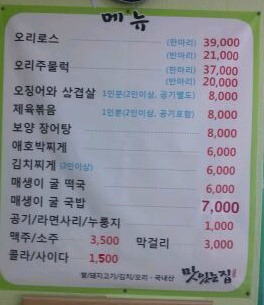 메뉴
오리로스 (한마리) 39,000
(반마리) 21,000
오리주물럭 (한마리) 37,000
(반마리) 20,000
오징어와 삼겹살 1인분(2인이상, 공기별도) 8,000
제육볶음 1인분(2인이상, 공기포함) 8,000
보양 장어탕 8,000
애호박찌개 6,000
김치찌개 (2인이상) 6,000
매생이 굴 떡국 6,000
매생이 굴 국밥 7,000
공기/라면사리/누룽지 1,000
맥주/소주 3,500 막걸리 3,000
콜라/사이다 1,500
쌀/돼지고기/김치/오리 - 국내산 맛있는집